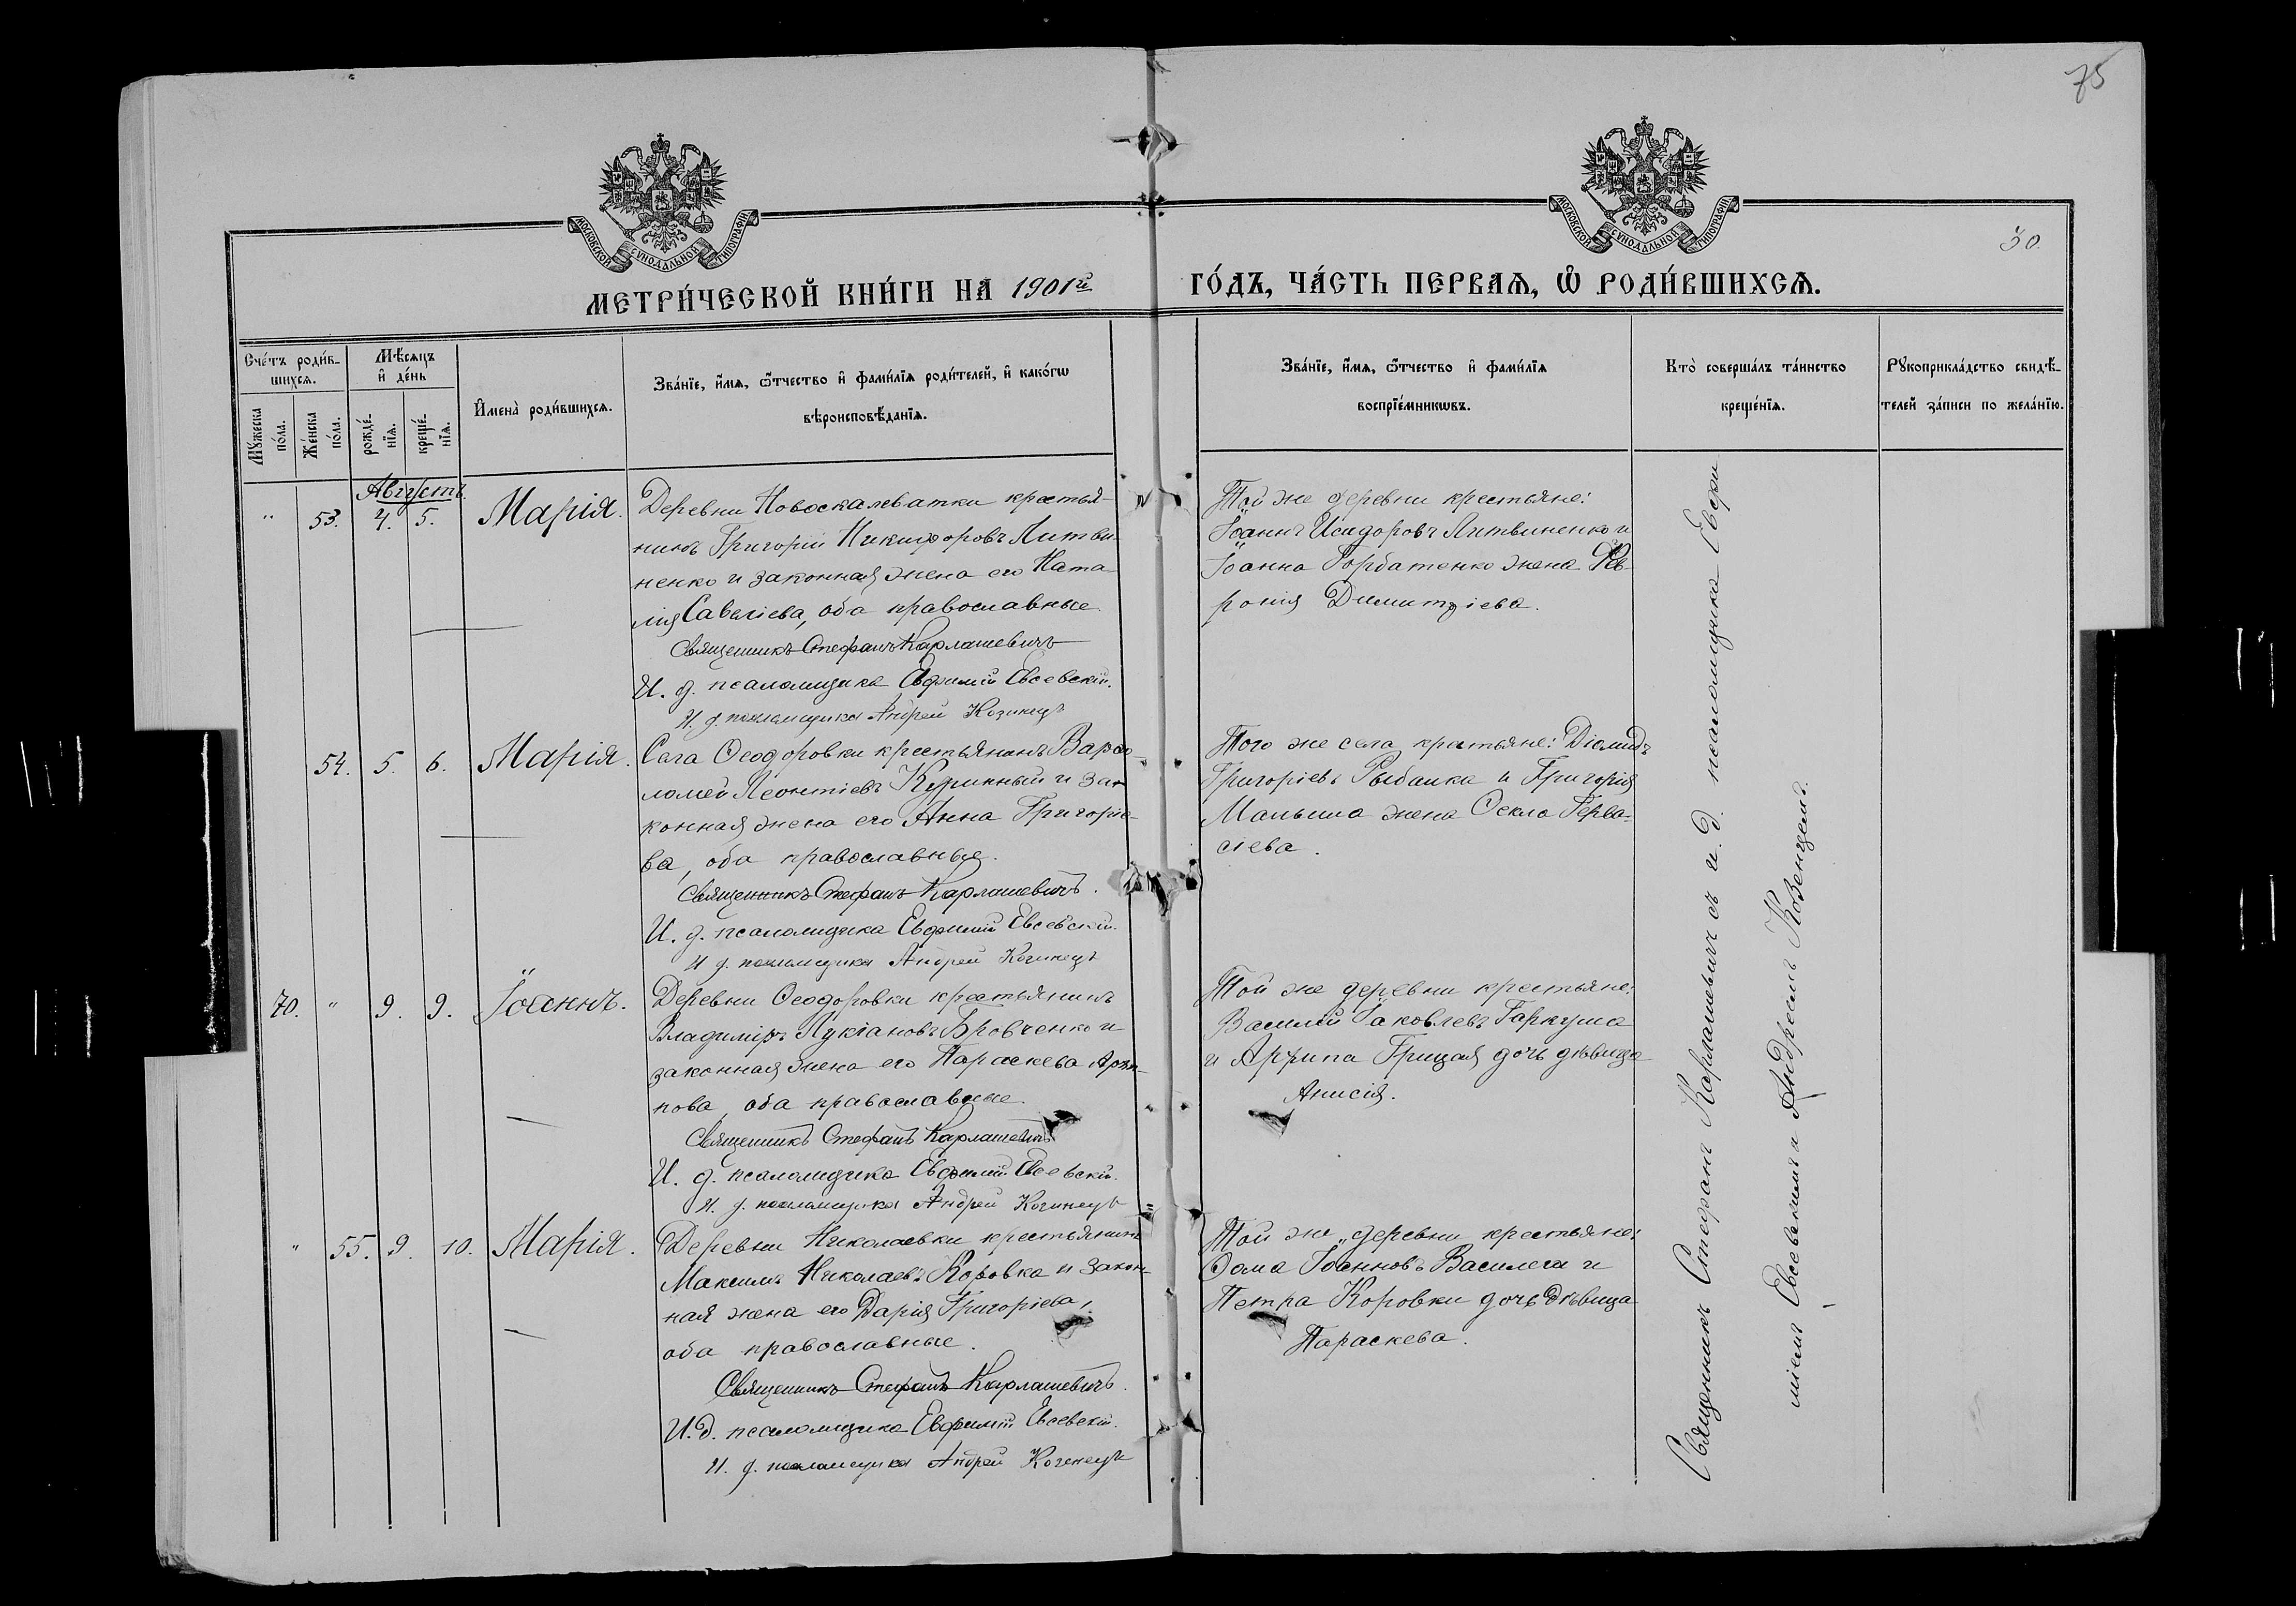 75
МОСКОВСКОЙ СУНОДАЛЬНОЙ ТИПОГРАФІИ
МОСКОВСКОЙ СУНОДАЛЬНОЙ ТИПОГРАФІИ
30.
МЕТРИ́ЧЕСКОЙ КНИ́ГИ НА 1901й ГО́ДЪ, ЧА́СТЬ ПЕРВАѦ, Ѡ҆ РОДИ́ВШИХСѦ.
Сче́тъ роди́в-
шихсѧ.
Мѣ́сѧцъ
и҆ де́нь
Мꙋ́жеска
по́ла.
Же́нска
по́ла.
рожде́-
нїѧ.
креще́-
нїѧ.
И҆мена̀ роди́вшихсѧ.
Зва́нїе, и҆́мѧ, ѻ҆́тчество и҆ фами́лїѧ роди́телей, и҆ како́гѡ
вѣроисповѣ́данїѧ.
Зва́нїе, и҆́мѧ, ѻ҆́тчество и҆ фами́лїѧ
воспрїе́мникѡвъ.
Кто̀ соверша́лъ та́инство
креще́нїѧ.
Рꙋкоприкла́дство свидѣ́-
телей за́писи по жела́нїю.
Августъ.
" 53. 4. 5. Марія.
Деревни Новоскалеватки крестья-
нинъ Григорій Никифоровъ Литви-
ненко и законная жена его Ната-
лія Савеліева, оба православные.
Священникъ Стефанъ Карлашевичъ
И. д. псаломщика Евфимій Евсевскій.
И. д. псаломщика Андрей Козинецъ
Той же деревни крестьяне:
Іоаннъ Исидоровъ Литвиненко и
Іоанна Горбатенко жена Фев-
ронія Димитріева.
54. 5. 6. Марія.
Села Ѳеодоровки крестьянинъ Варѳо-
ломей Леонтіевъ Куринный и за-
конная жена его Анна Григоріе-
ва, оба православные.
Священникъ Стефанъ Карлашевичъ.
И. д. псаломщика Евфимій Евсевскій.
И. д. псаломщика Андрей Козинецъ
Того же села крестьяне: Діомидъ
Григоріевъ Рыбалка и Григорія
Малыша жена Ѳекла Герва-
сіева.
70. " 9. 9. Іоаннъ.
Деревни Ѳеодоровки крестьянинъ
Владиміръ Лукіановъ Бровченко и
законная жена его Параскева Архи-
пова, оба православные.
Священникъ Стефанъ Карлашевичъ
И. д. псаломщика Евфимій Евсевскій.
И. д. псаломщика Андрей Козинецъ
Той же деревни крестьяне:
Василій Іаковлевъ Гаркуша
и Агрипа Грицая дочь дѣвица
Анисія.
" 55. 9. 10. Марія.
Деревни Николаевки крестьянинъ
Максимъ Николаевъ Коровка и закон-
ная жена его Дарія Григоріева,
оба православные.
Священникъ Стефанъ Карлашевичъ.
И. д. псаломщика Евфимій Евсевскій.
И. д. псаломщика Андрей Козинецъ
Той же деревни крестьяне:
Ѳома Іоанновъ Василега и
Петра Коровки дочь дѣвица
Параскева.
Священникъ Стефанъ Карлашевичъ съ и. д. псаломщика Евфи-
міемъ Евсевскимъ и Андреемъ Козенцемъ.